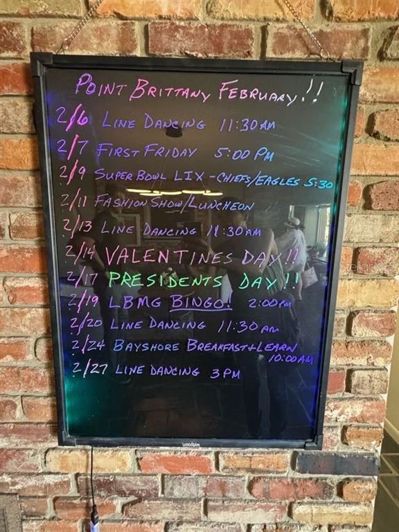 POINT BRITTANY FEBRUARY!!
2/6 LINE DANCING 11:30 AM
2/7 FIRST FRIDAY 5:00 PM
2/9 SUPER BOWL LIX - CHIEFS/EAGLES 5:30
2/11 FASHION SHOW/LUNCHEON
2/13 LINE DANCING 11:30 AM
2/14 VALENTINES DAY!!
2/17 PRESIDENTS DAY!!
2/19 LBMG BINGO! 2:00 PM
2/20 LINE DANCING 11:30 AM
2/24 BAYSHORE BREAKFAST+LEARN
10:00 AM
2/27 LINE DANCING 3 PM